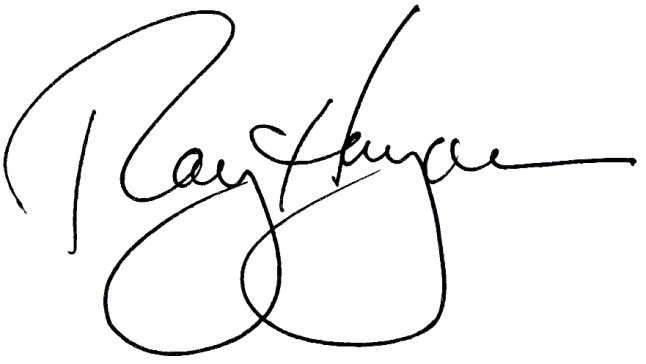 Ray Hayden